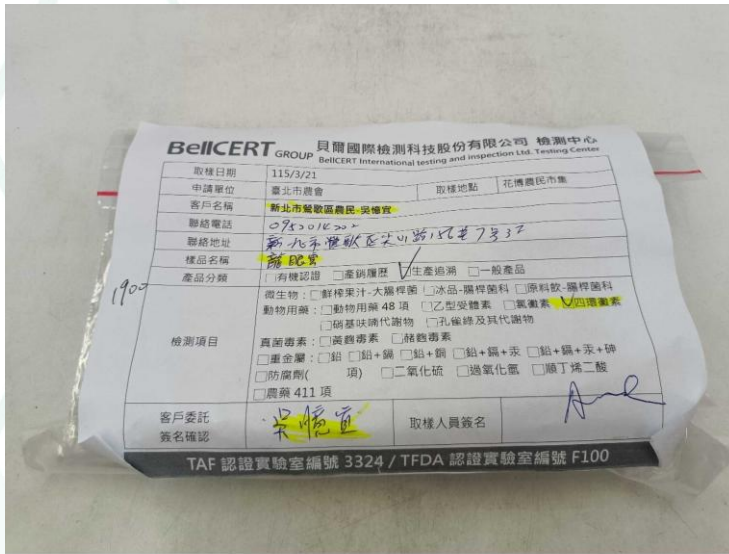 BellCERT GROUP 貝爾國際檢測科技股份有限公司 檢測中心
BellCERT International testing and inspection Ltd. Testing Center
取樣日期 115/3/21
申請單位 臺北市農會 取樣地點 花博農民市集
客戶名稱 新北市鶯歌區農民-吳憶宜
聯絡電話
聯絡地址 新北市鶯歌區尖山路
樣品名稱
產品分類 □有機認證 □產銷履歷 ✓生產追溯 □一般產品
1900
微生物：□鮮榨果汁-大腸桿菌 □冰品-腸桿菌科 □原料飲-腸桿菌科
動物用藥：□動物用藥 48 項 □乙型受體素 □氯黴素 ✓四環黴素
□硝基呋喃代謝物 □孔雀綠及其代謝物
檢測項目 真菌毒素：□黃麴毒素 □赭麴毒素
□重金屬：□鉛 □鉛+鎘 □鉛+銅 □鉛+鎘+汞 □鉛+鎘+汞+砷
□防腐劑( 項) □二氧化硫 □過氧化氫 □順丁烯二酸
□農藥 411 項
客戶委託簽名確認 吳憶宜 取樣人員簽名
TAF 認證實驗室編號 3324 / TFDA 認證實驗室編號 F100